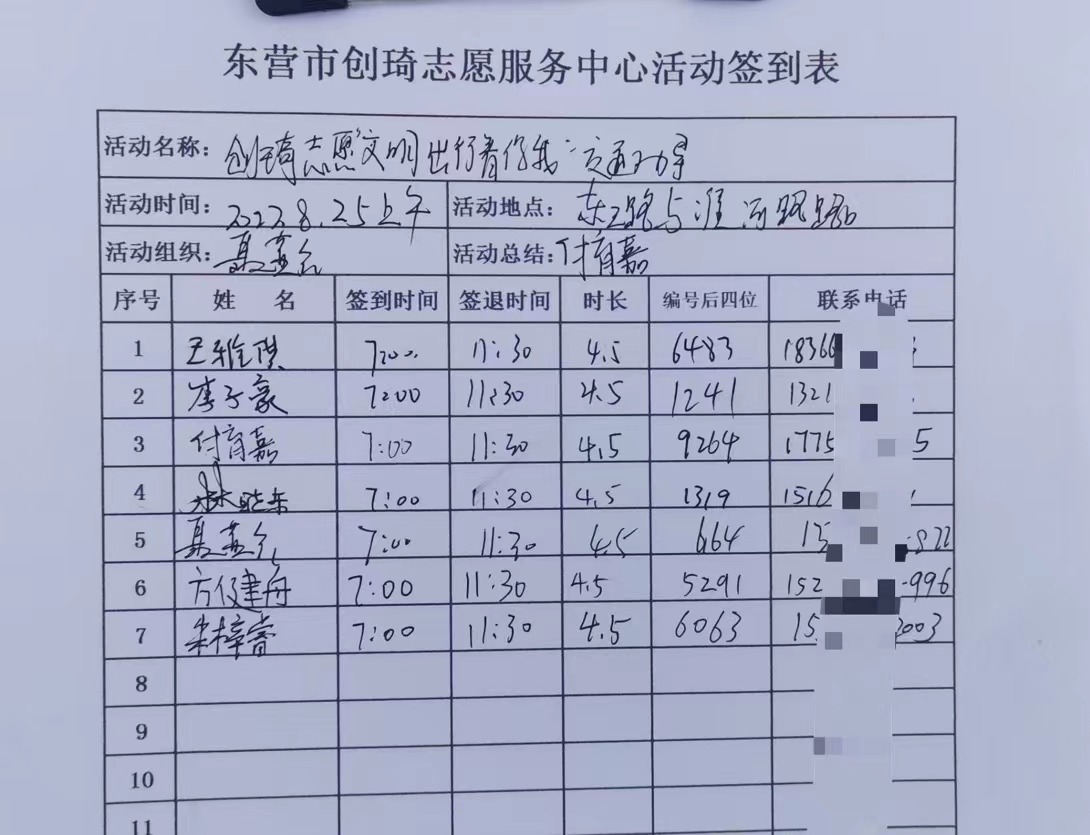 东营市创琦志愿服务中心活动签到表
活动名称：创琦志愿"文明出行看你我"交通劝导
活动时间：2022.8.25上午 活动地点：东三路与淮河路路口
活动组织： 活动总结：付育嘉
序号 姓 名 签到时间 签退时间 时长 编号后四位 联系电话
1 王雅琪 7:00 11:30 4.5 6483 18366
2 李子豪 7:00 11:30 4.5 1241 1321
3 付育嘉 7:00 11:30 4.5 9264 1775 5
4 林晓东 7:00 11:30 4.5 1319 1516
5 7:00 11:30 4.5 664 13 822
6 方仪建舟 7:00 11:30 4.5 5291 152 996
7 朱梓睿 7:00 11:30 4.5 6063 15 2003
8
9
10
11